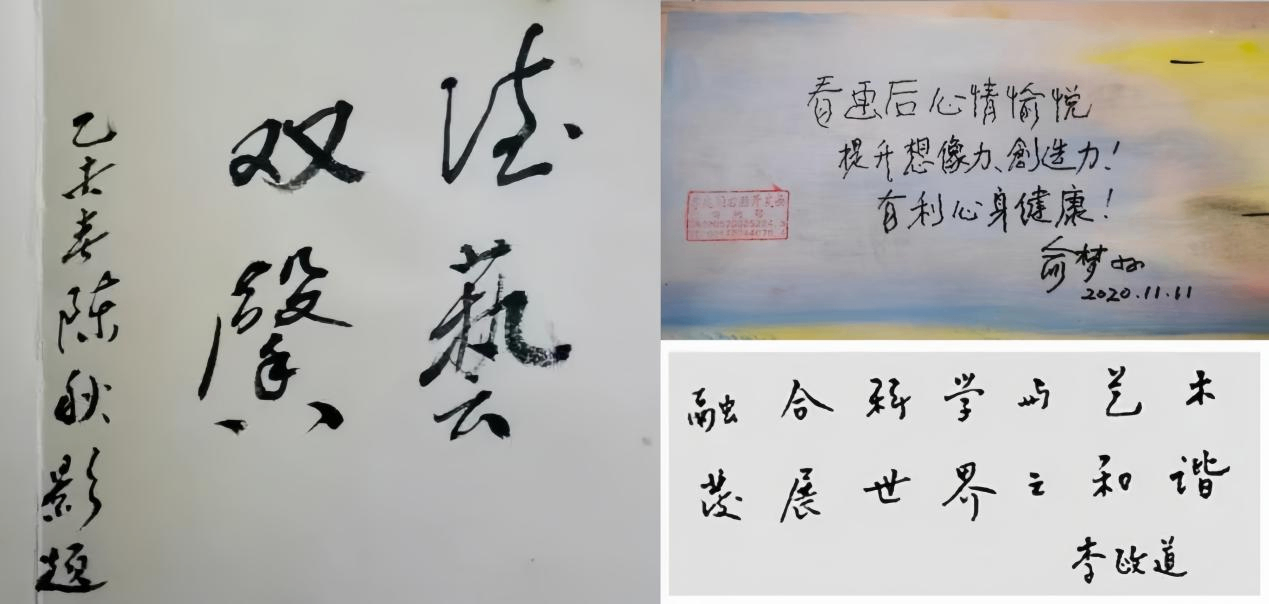 德藝
双馨
乙未春陈秋影题
看画后心情愉悦
提升想像力、創造力！
有利心身健康！
俞梦孙
2020.11.11
融合科学与艺术
發展世界之和谐
李政道